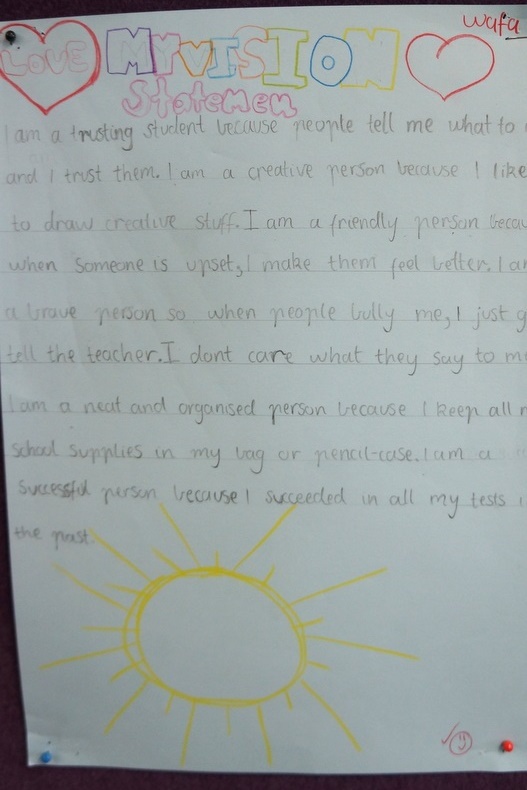 wafa
LOVE MY VISION
Statemen
I am a trusting student because people tell me what to
and I trust them. I am a creative person because I like
to draw creative stuff. I am a friendly person becau
when someone is upset, I make them feel better. I am
a brave person so when people bully me, I just g
tell the teacher. I dont care what they say to me
I am a neat and organised person because I keep all m
school supplies in my bag or pencil-case. I am a
successful person because I succeeded in all my tests i
the past.